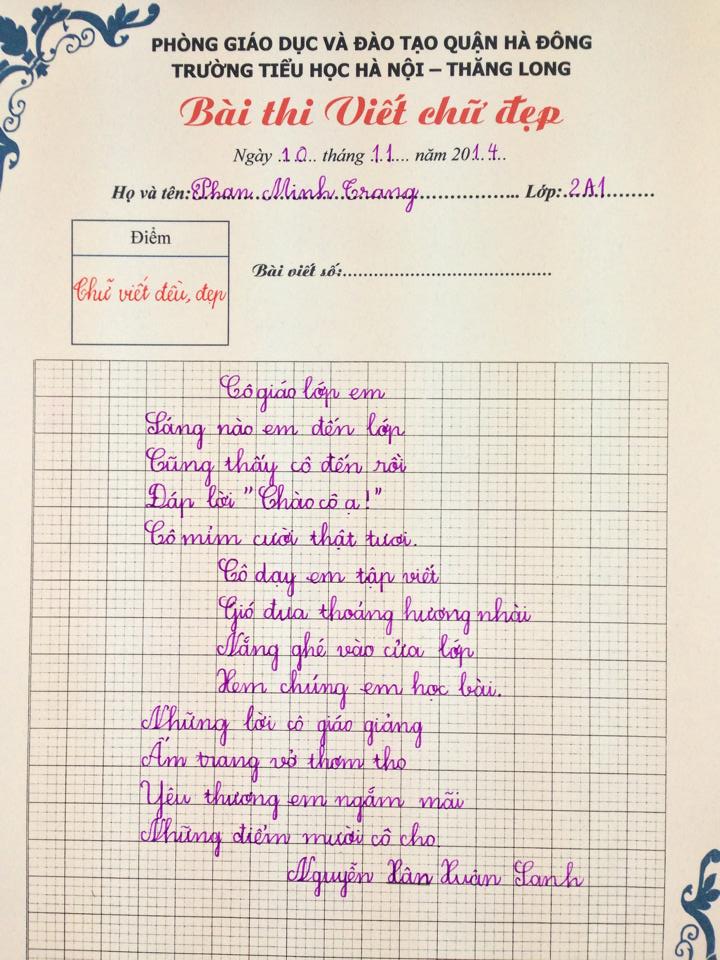 PHÒNG GIÁO DỤC VÀ ĐÀO TẠO QUẬN HÀ ĐÔNG
TRƯỜNG TIỂU HỌC HÀ NỘI – THĂNG LONG
Bài thi Viết chữ đẹp
Ngày 10 tháng 11 năm 2014
Họ và tên: Phan Minh Trang Lớp: 2A1
Điểm
Bài viết số:
Chữ viết đều, đẹp
Cô giáo lớp em
Sáng nào em đến lớp
Cũng thấy cô đến rồi
Đáp lời "Chào cô ạ!"
Cô mỉm cười thật tươi.
Cô dạy em tập viết
Gió đưa thoảng hương nhài
Nắng ghé vào cửa lớp
Xem chúng em học bài.
Những lời cô giáo giảng
Ấm trang vở thơm tho
Yêu thương em ngắm mãi
Những điểm mười cô cho.
Nguyễn Xân Xuân Sanh